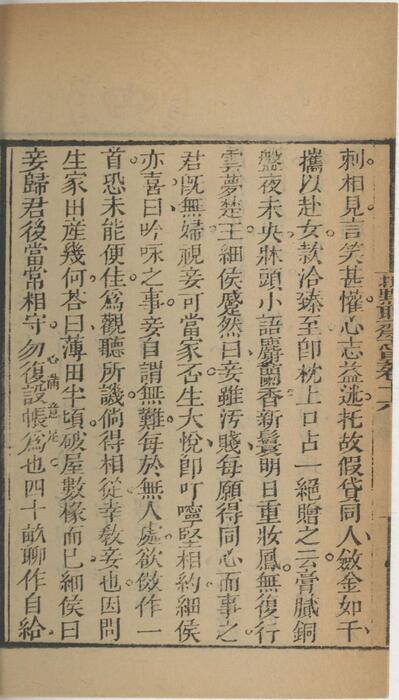 刺相見言笑甚懽心志益迷托故假貸同人斂金如干
攜以赴女款洽臻至即枕上口占一絕贈之云膏膩銅
盤夜未央牀頭小語麝蘭香新鬟明日重妝鳳無復行
雲夢楚王細侯蹙然曰妾雖汚賤每願得同心而事之
君旣無婦視妾可當家否生大悅即叮嚀堅相約細侯
亦喜曰吟咏之事妾自謂無難每於無人處欲傚作一
首恐未能便佳爲觀聽所譏倘得相從幸教妾也因問
生家田產幾何荅曰薄田半頃破屋數椽而已細侯曰
妾歸君後當常相守勿復設帳爲也四十畝聊作自給